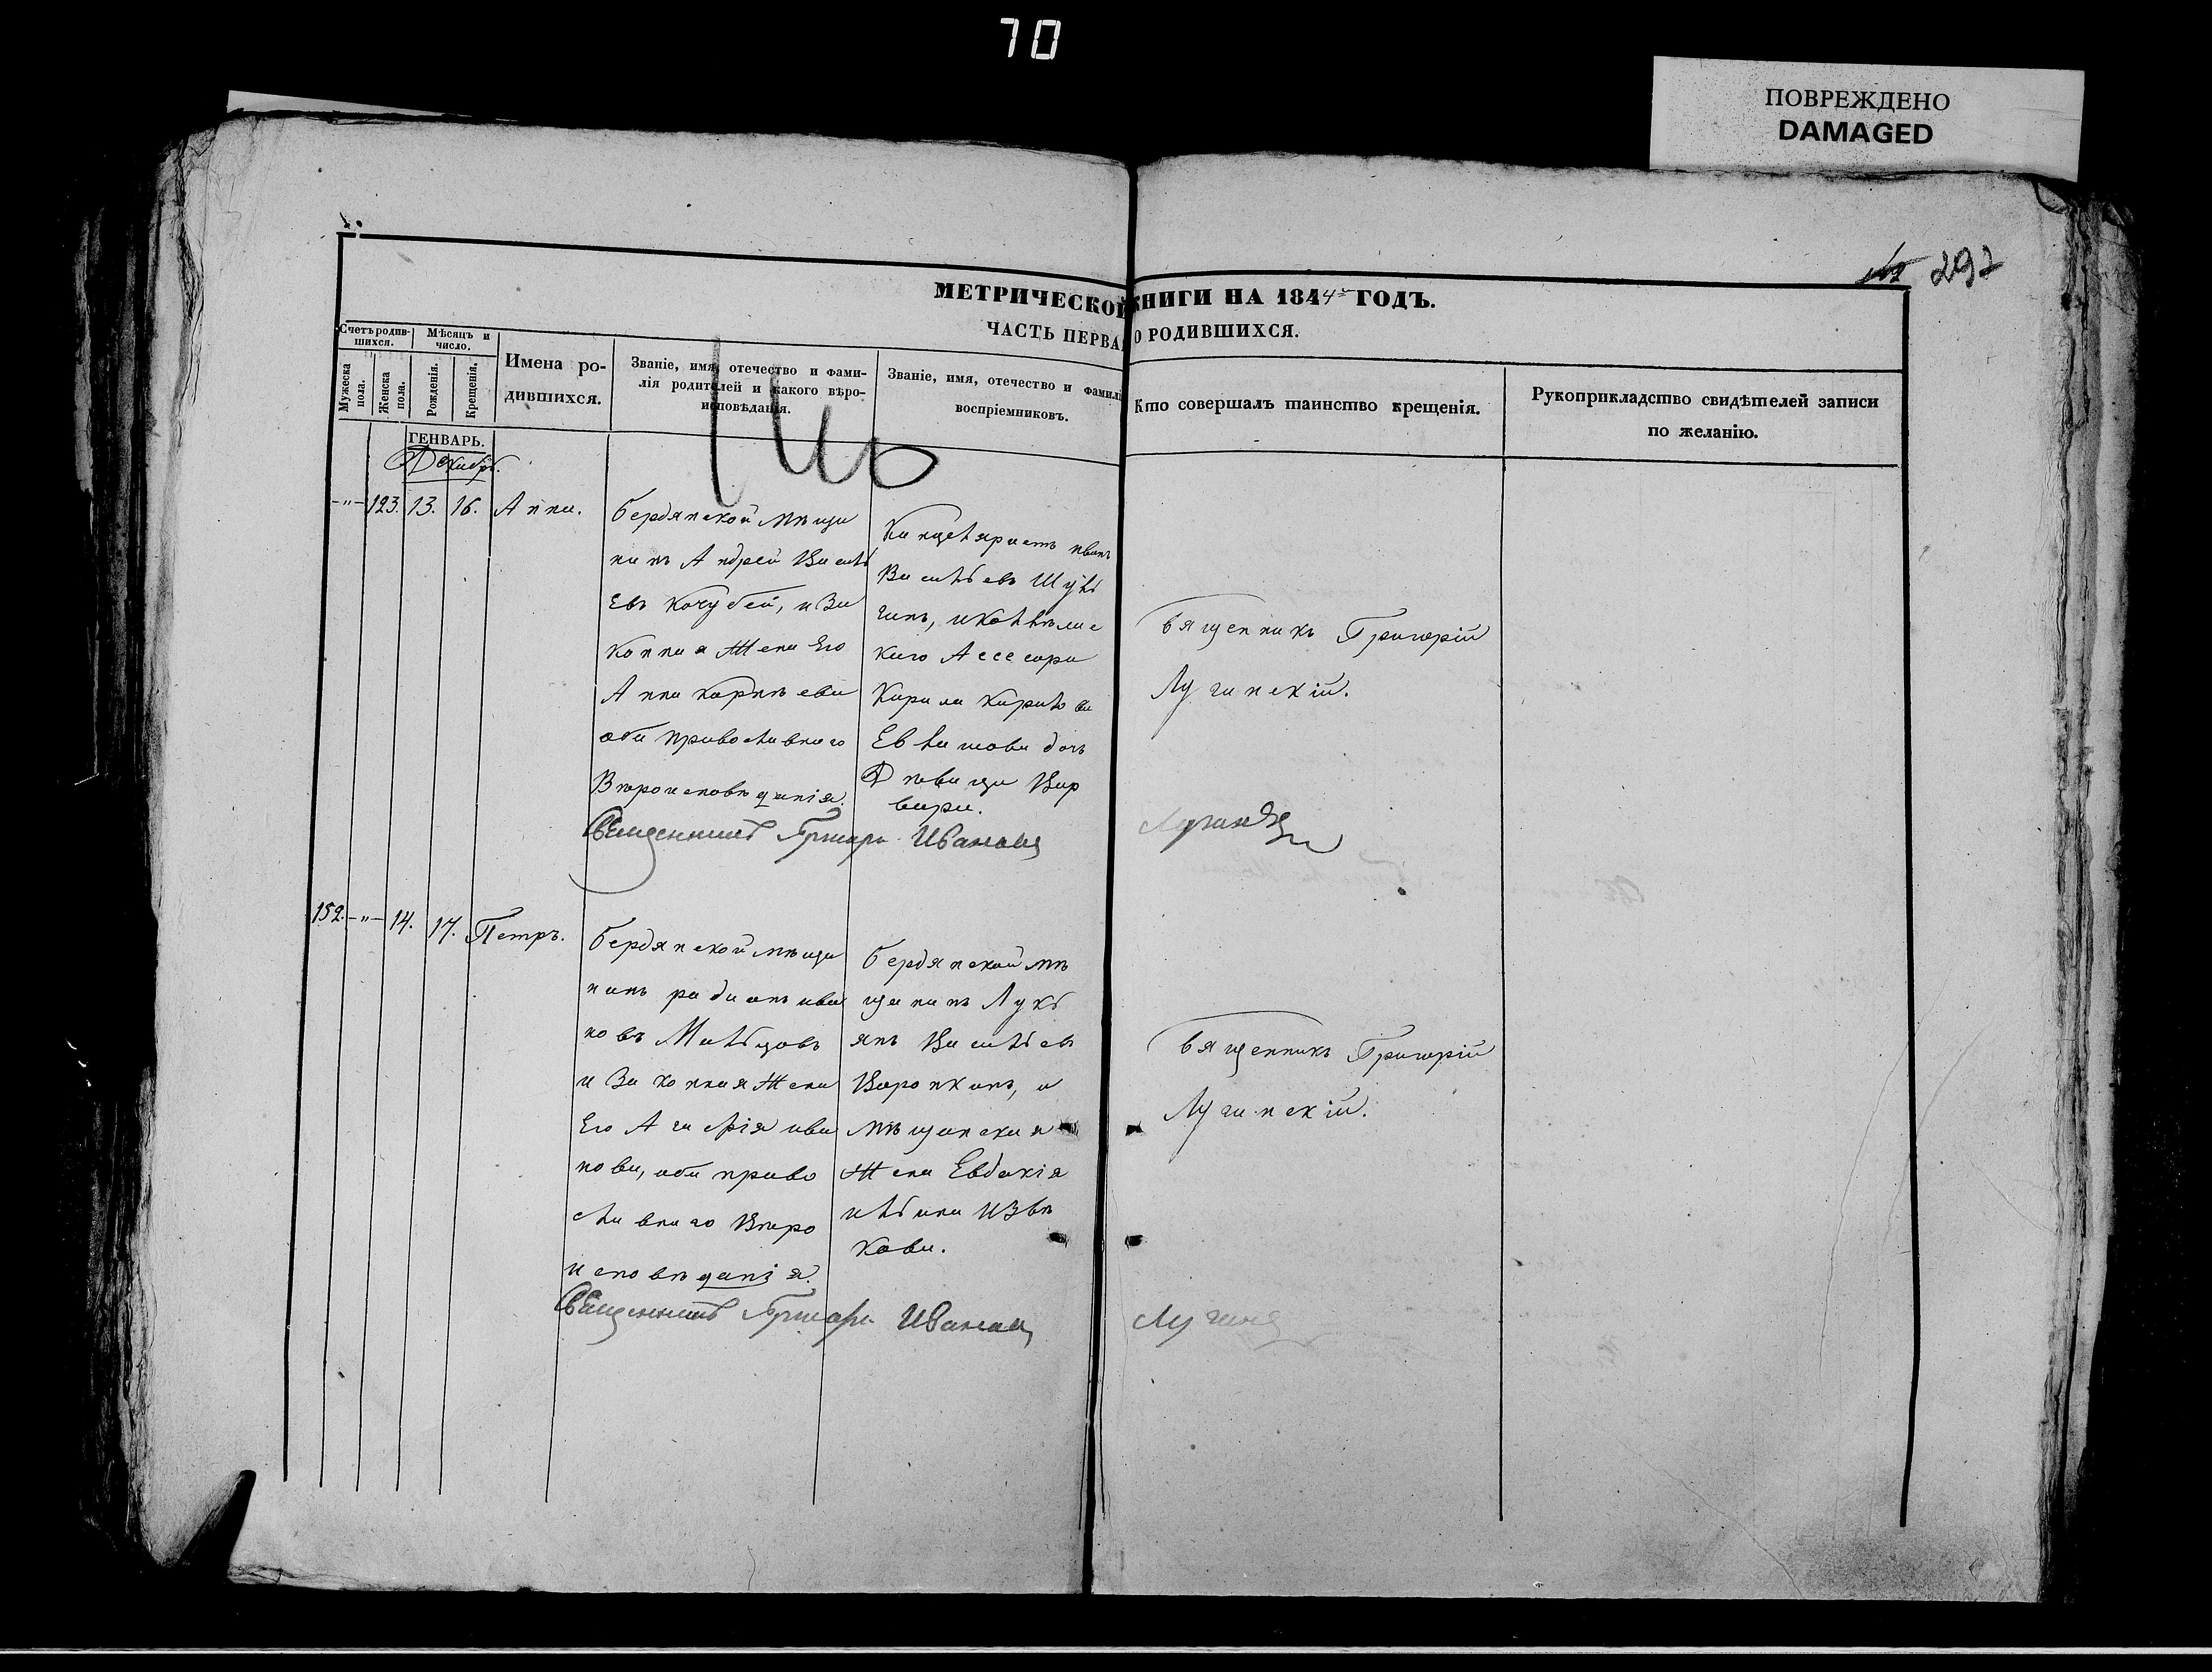 70
ПОВРЕЖДЕНО
DAMAGED
297
МЕТРИЧЕСКОЙ КНИГИ НА 1844й ГОДЪ.
ЧАСТЬ ПЕРВАЯ О РОДИВШИХСЯ.
Счетъ родившихся.
Мѣсяцъ и число.
Мужеска пола.
Женска пола.
Рожденія.
Крещенія.
Имена родившихся.
Званіе, имя, отечество и фами-
лія родителей и какого вѣро-
исповѣданія.
Званіе, имя, отечество и фамилі
воспріемниковъ.
Кто совершалъ таинство крещенія.
Рукоприкладство свидѣтелей записи
по желанію.
ГЕНВАРЬ.
Декабрь.
-"- 123. 13. 16. Анна.
бердянской мѣща
нинъ Андрей Василь
Евъ Кочубей, и За
конная Жена Его
Анна Карпѣева
оба Православнаго
Вѣроисповѣданія.
Канцеляристъ Иванъ
Васильевъ Шуль
гинъ, и Коллѣжс
каго Ассесора
Кирила Кирилова
дочь
Дѣвица Вар
вара.
Священникъ Григорій
Лугинскій.
Священникъ Григорій Иванов
152. -"- 14. 17. Петръ.
бердянской мѣща
нинъ радионъ ива
новъ Мальцовъ
и Законная Жена
Его Агафія ива
нова, оба право
славнаго Вѣро
исповѣданія.
бердянской мѣ
щанинъ Лукь
янъ Васильевъ
Воронкинъ, и
мѣщанская
Жена Евдокія
ильина
Священникъ Григорій
Лугинскій.
Священникъ Григорій Иванов